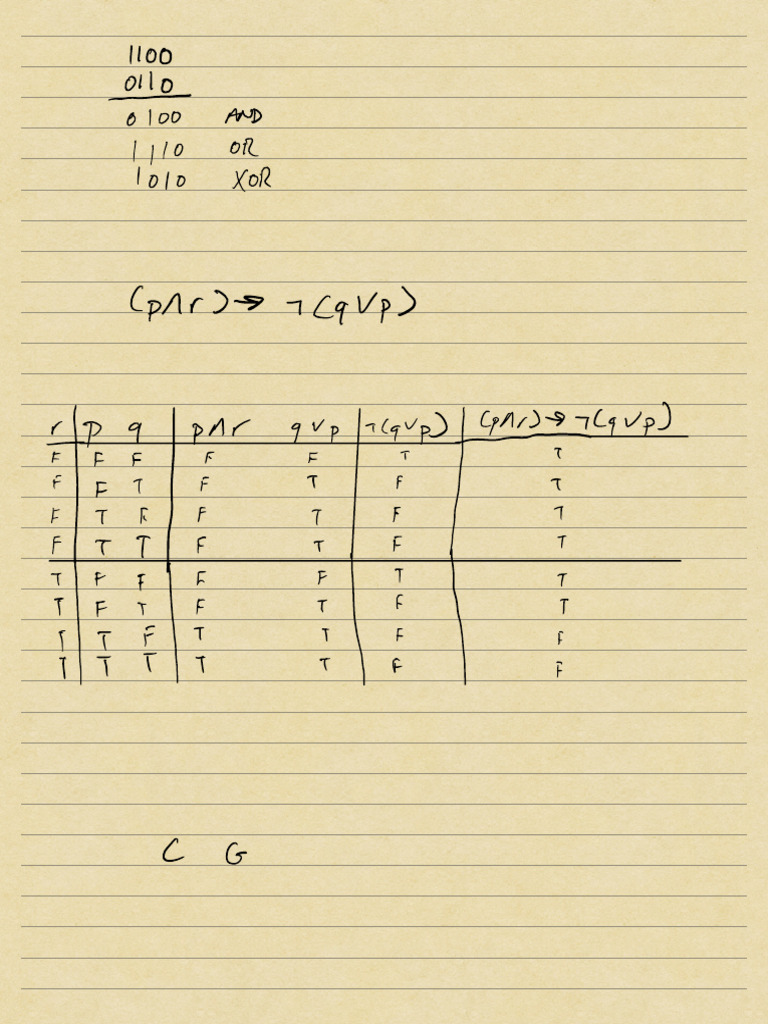 1100
0110
0100 AND
1110 OR
1010 XOR
(p∧r) → ¬(q∨p)
r p q p∧r q∨p ¬(q∨p) (p∧r) → ¬(q∨p)
F F F F F T T
F F T F T F T
F T F F T F T
F T T F T F T
T F F F F T T
T F T F T F T
T T F T T F F
T T T T T F F
C G